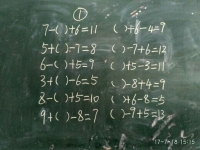 ①
7-( )+6=11 ( )+8-4=9
5+( )-7=8 ( )-7+6=12
6-( )+5=9 ( )+5-3=11
3+( )-6=5 ( )-8+4=9
8-( )+5=10 ( )+6-8=5
9+( )-8=7 ( )-9+5=13
17-7-18 15:15